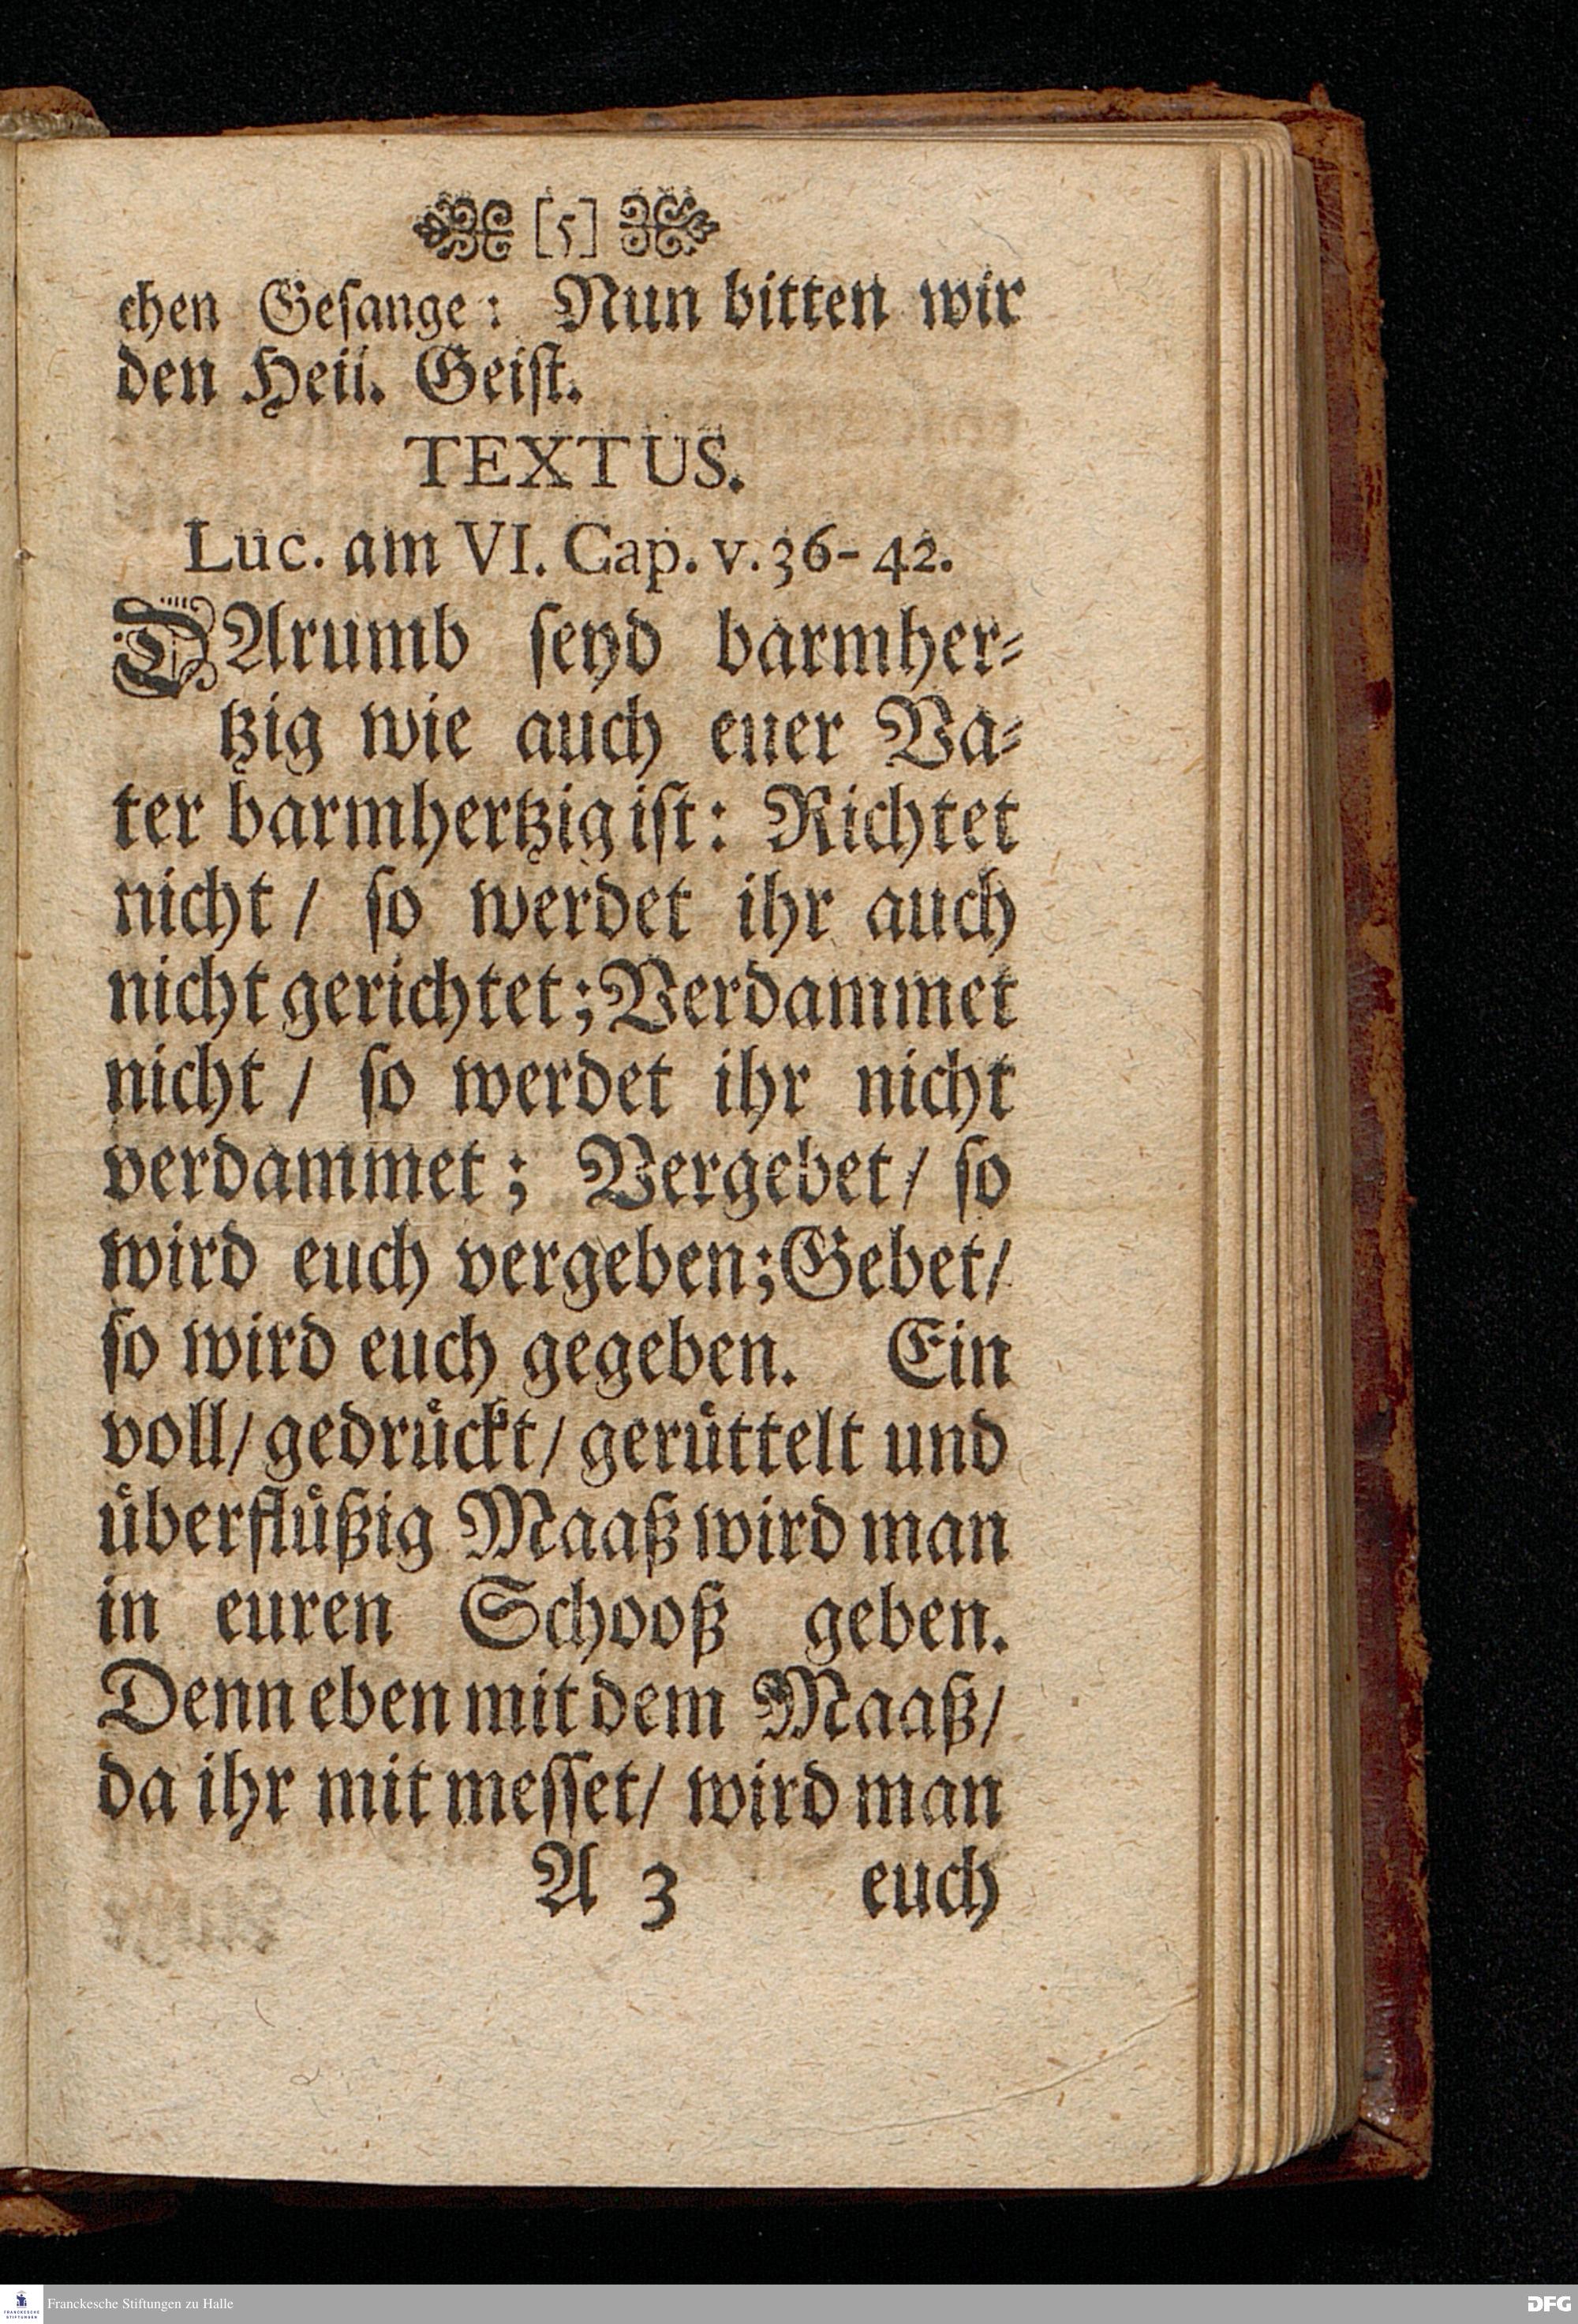 [5]
chen Geſange: Nun bitten wir
den Heil. Geiſt.
TEXTUS.
Luc. am VI. Cap. v. 36-42.
DArumb ſeyd barmher⸗
tzig wie auch euer Va⸗
ter barmhertzig iſt: Richtet
nicht / ſo werdet ihr auch
nicht gerichtet; Verdammet
nicht / ſo werdet ihr nicht
verdammet; Vergebet / ſo
wird euch vergeben; Gebet /
ſo wird euch gegeben. Ein
voll / gedruͤckt / geruͤttelt und
uͤberfluͤßig Maaß wird man
in euren Schooß geben.
Denn eben mit dem Maaß /
da ihr mit meſſet / wird man
A 3 euch
FRANCKESCHE STIFTUNGEN
Franckesche Stiftungen zu Halle
DFG